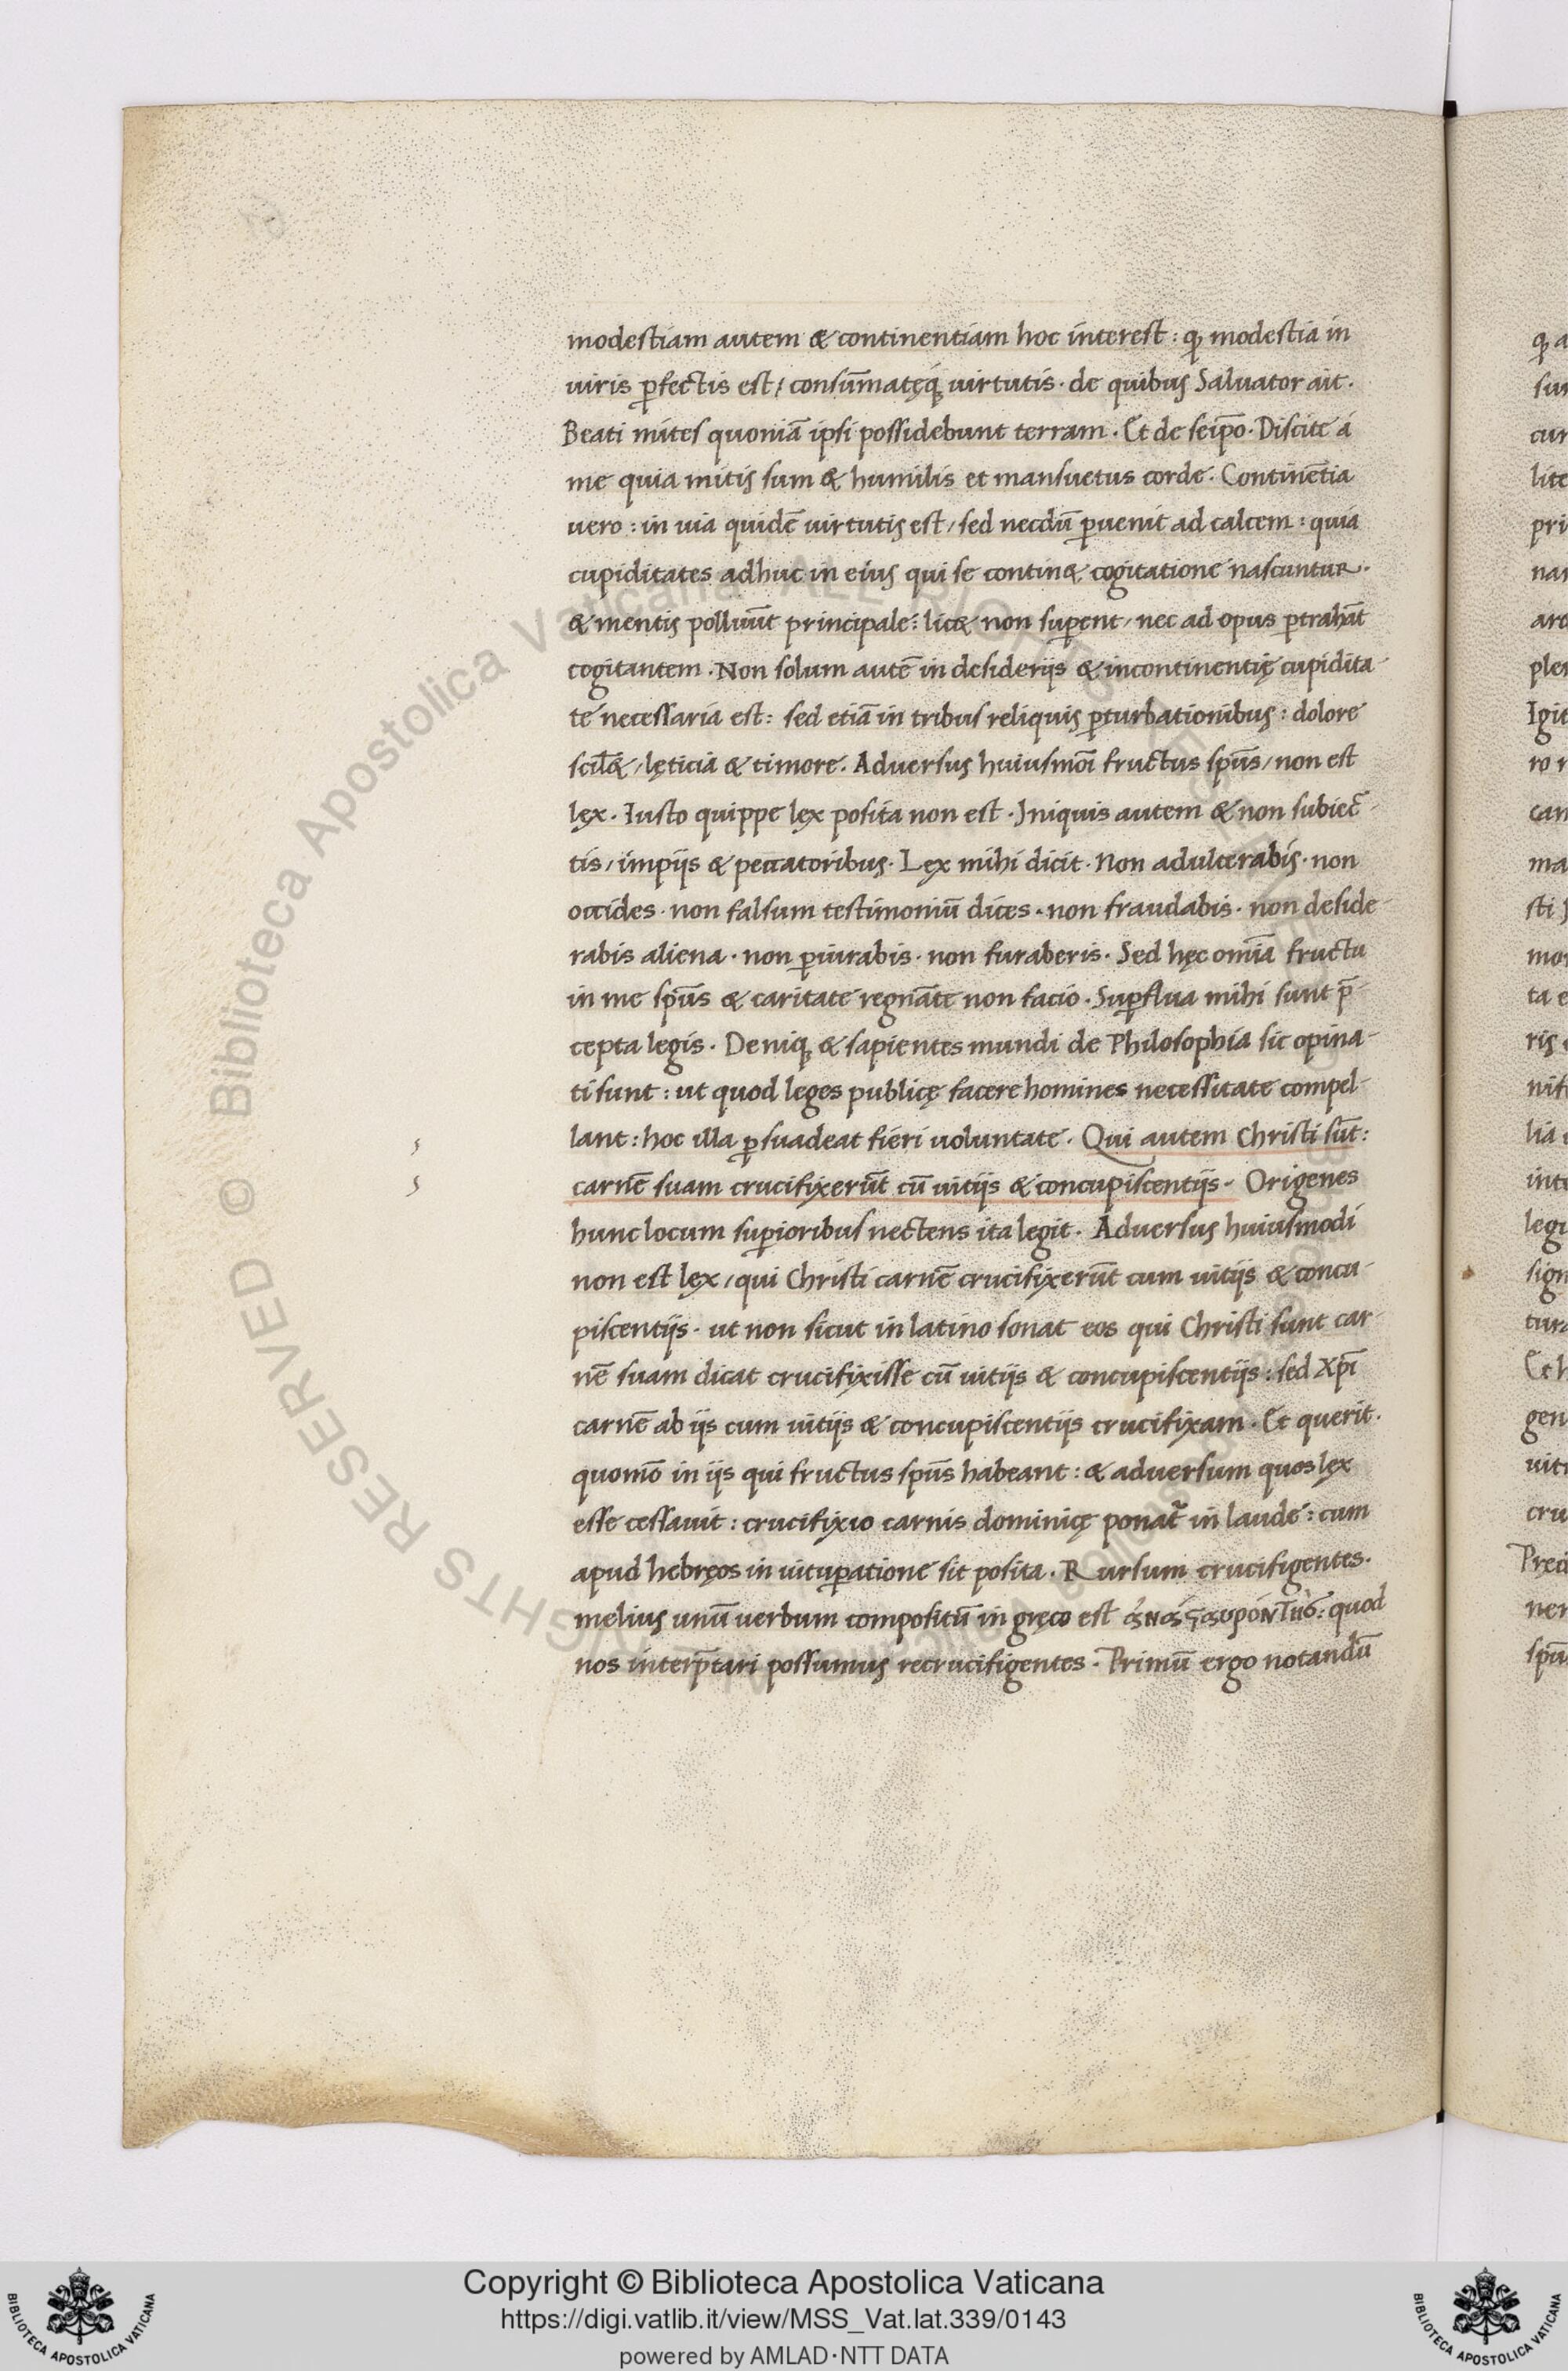 modestiam autem & continentiam hoc interest: ꝙ modestia in
uiris ꝑfectis est, consūmatęq́ꝫ uirtutis. de quibus Saluator ait.
Beati mites quoniā ipsi possidebunt terram. Et de seip̄o. Discite á
me quia mitis sum & humilis et mansuetus corde. Continētia
uero: in uia quidē uirtutis est, sed necdū ꝑuenit ad calcem: quia
cupiditates adhuc in eius qui se contin& cogitatione nascuntur.
& mentis polluūt principale: lic& non suꝑent, nec ad opus ꝑtrahāt
cogitantem. Non solum autē in desiderijs & incontinentię cupidita-
te necessaria est: sed etiā in tribus reliquis ꝑturbationibus: dolore
scil&, lęticia & timore. Aduersus huiusmōi fructus sp̄us, non est
lęx. Iusto quippe lęx posita non est. Iniquis autem & non subiec-
tis, impijs & peccatoribus. Lęx mihi dicit. Non adulterabis. non
occides. non falsum testimoniū dices. non fraudabis. non deside-
rabis aliena. non ꝑiurabis. non furaberis. Sed hęc om̄ia fructu
in me sp̄us & caritate regnāte non facio. Suꝑflua mihi sunt p̄-
cepta legis. Deniqꝫ & sapientes mundi de Philosophia sic opina-
ti sunt: ut quod leges publicę facere homines necessitate compel-
lant: hoc illa ꝑsuadeat fieri uoluntate. Qui autem Christi sūt:
carnē suam crucifixerūt cū uitijs & concupiscentijs. Origenes
hunc locum suꝑioribus nectens ita legit. Aduersus huiusmodi
non est lęx, qui Christi carnē crucifixerūt cum uitijs & concu-
piscentijs. ut non sicut in latino sonat eos qui Christi sunt car-
nē suam dicat crucifixisse cū uitijs & concupiscentijs: sed Xp̄i
carnē ab ijs cum uitijs & concupiscentijs crucifixam. Et querit.
quomō in ijs qui fructus sp̄us habeant: & aduersum quos lęx
esse cessauit: crucifixio carnis dominicę ponat᷑ in laude: cum
apud hebręos in uituꝑatione sit posita. Rursum crucifigentes.
melius unū uerbum compositū in gręco est : quod
nos interp̄tari possumus recrucifigentes. Primū ergo notandū
ꝙ a
sun
cur
lite
pri
nar
ard
plen
Igit
ro n
can
ma
sti
mor
ta e
ris
nif
lia
inte
legi
sign
tura
Et h
gen
uiti
cru
Pręci
ner
spū
© Biblioteca Apostolica Vaticana ALL RIGHTS RESERVED
Copyright © Biblioteca Apostolica Vaticana
https://digi.vatlib.it/view/MSS_Vat.lat.339/0143
powered by AMLAD·NTT DATA
BIBLIOTECA APOSTOLICA VATICANA
BIBLIOTECA APOSTOLICA VATICANA